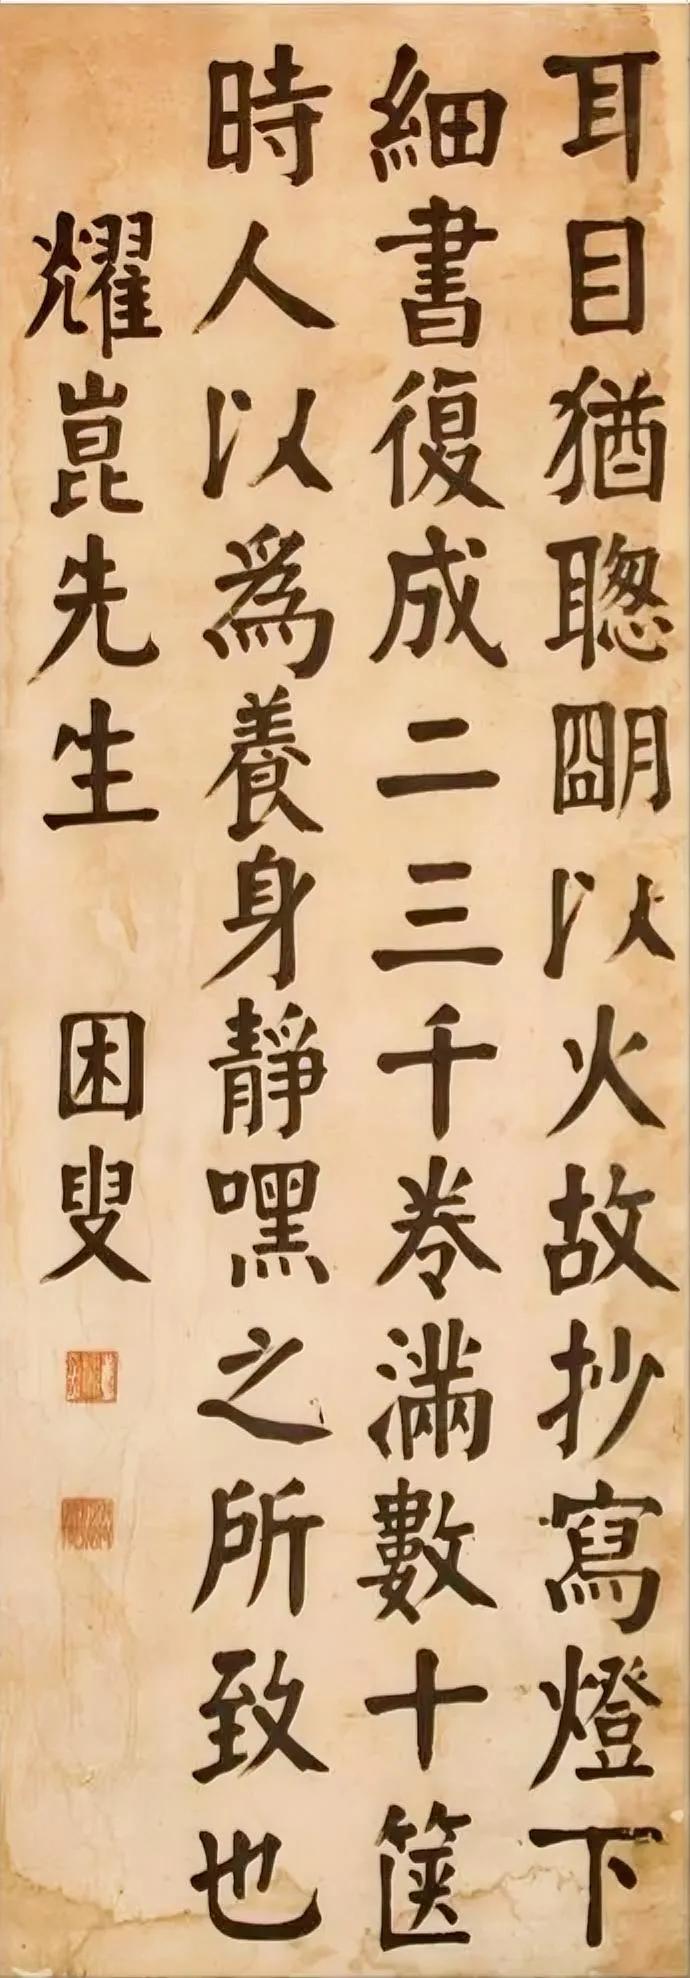 耳目猶聰朙以火故抄寫燈下
細書復成二三千卷滿數十篋
時人以為養身靜嘿之所致也
耀崑先生 困叟